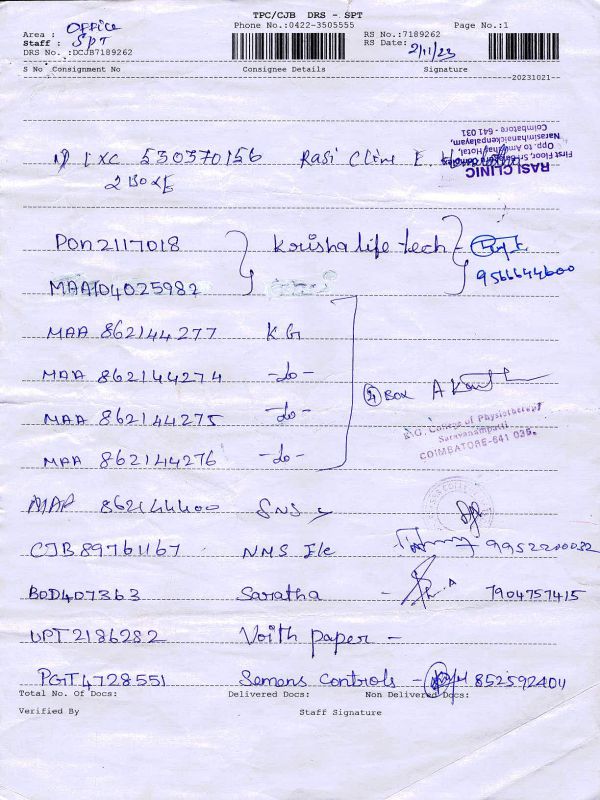 TPC/CJB DRS - SPT
Phone No.:0422-3505555 Page No.:1
Area : OFFICE
Staff : SPT
DRS No. :DCJB7189262
RS No.:7189262
RS Date: 2/11/23
S No Consignment No Consignee Details Signature
--20231021--
RASI CLINIC
First Floor, Sri Ganapra Complex
Opp. to Amirthaj Hotal,
Narasimhanaickenpalayam,
Coimbatore - 641 031
LXC 530370156 Rasi Clinic
2 BOXE
PON2117018 Krisha life tech -
9566644600
MAA104025982
MAA 862144277 KG
MAA 862144274 -do-
MAA 862144275 -do-
MAA 862144276 -do-
④ Box
K.G. College of Physiotherapy
Saravanampatti
COIMBATORE-641 035.
MAA 862144400 SNS
CJB89761167 NMS Ile 9952200032
BOD407363 Saratha - 7904757415
UPT2186282 Voith paper -
PGT4728551 Semens Controls - 852592401
Total No. Of Docs: Delivered Docs: Non Delivered Docs:
Verified By Staff Signature